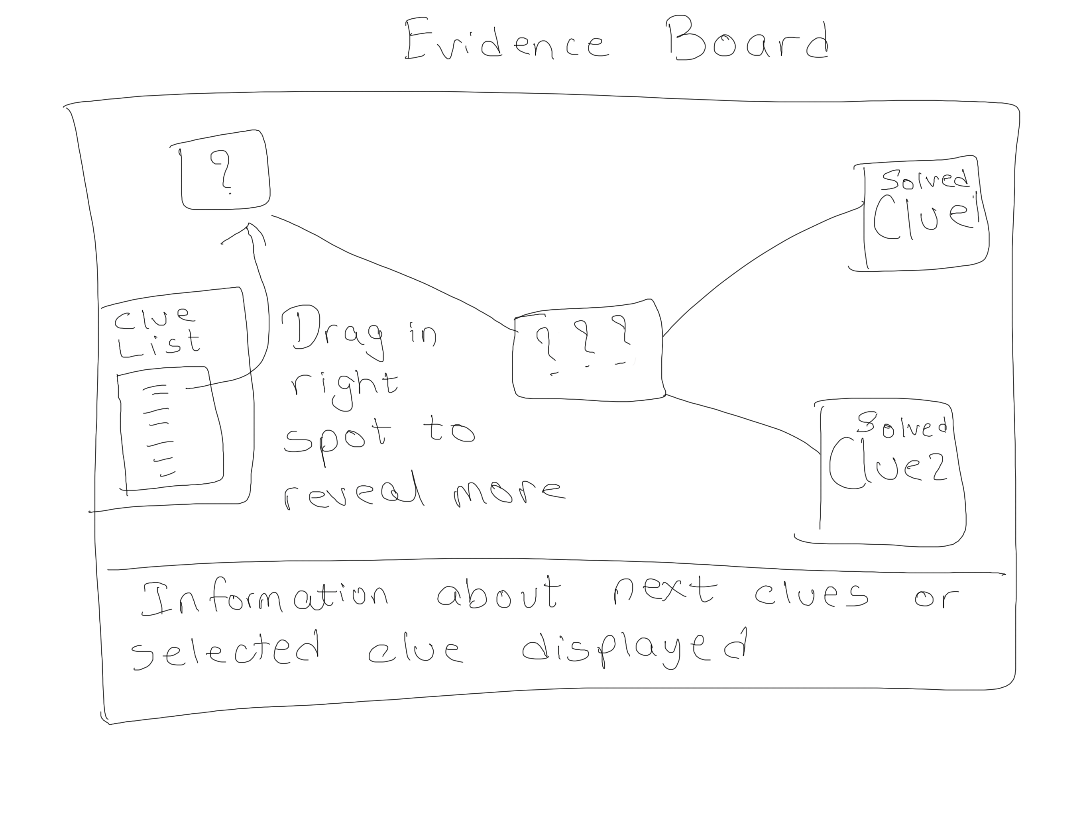 Evidence Board
?
Solved
Clue1
Clue
List
Drag in
right
spot to
reveal more
? ? ?
Solved
Clue2
Information about next clues or
selected clue displayed